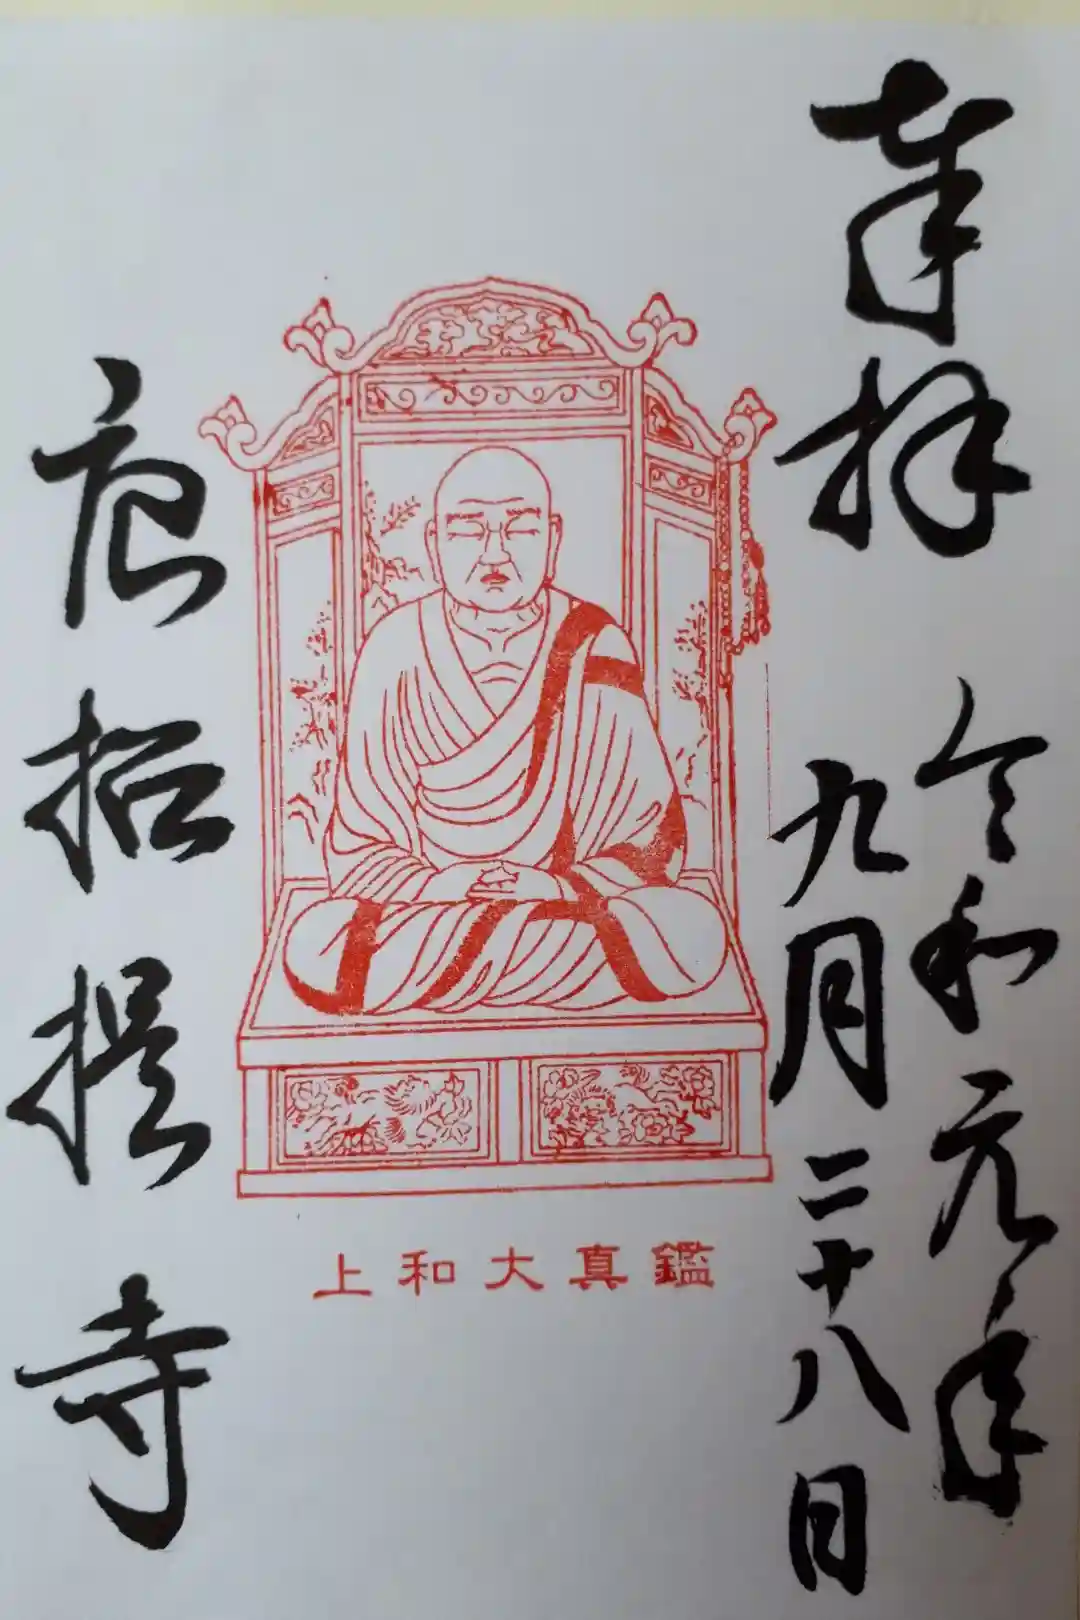 奉拝
令和元年
九月二十八日
鑑真大和上
唐招提寺